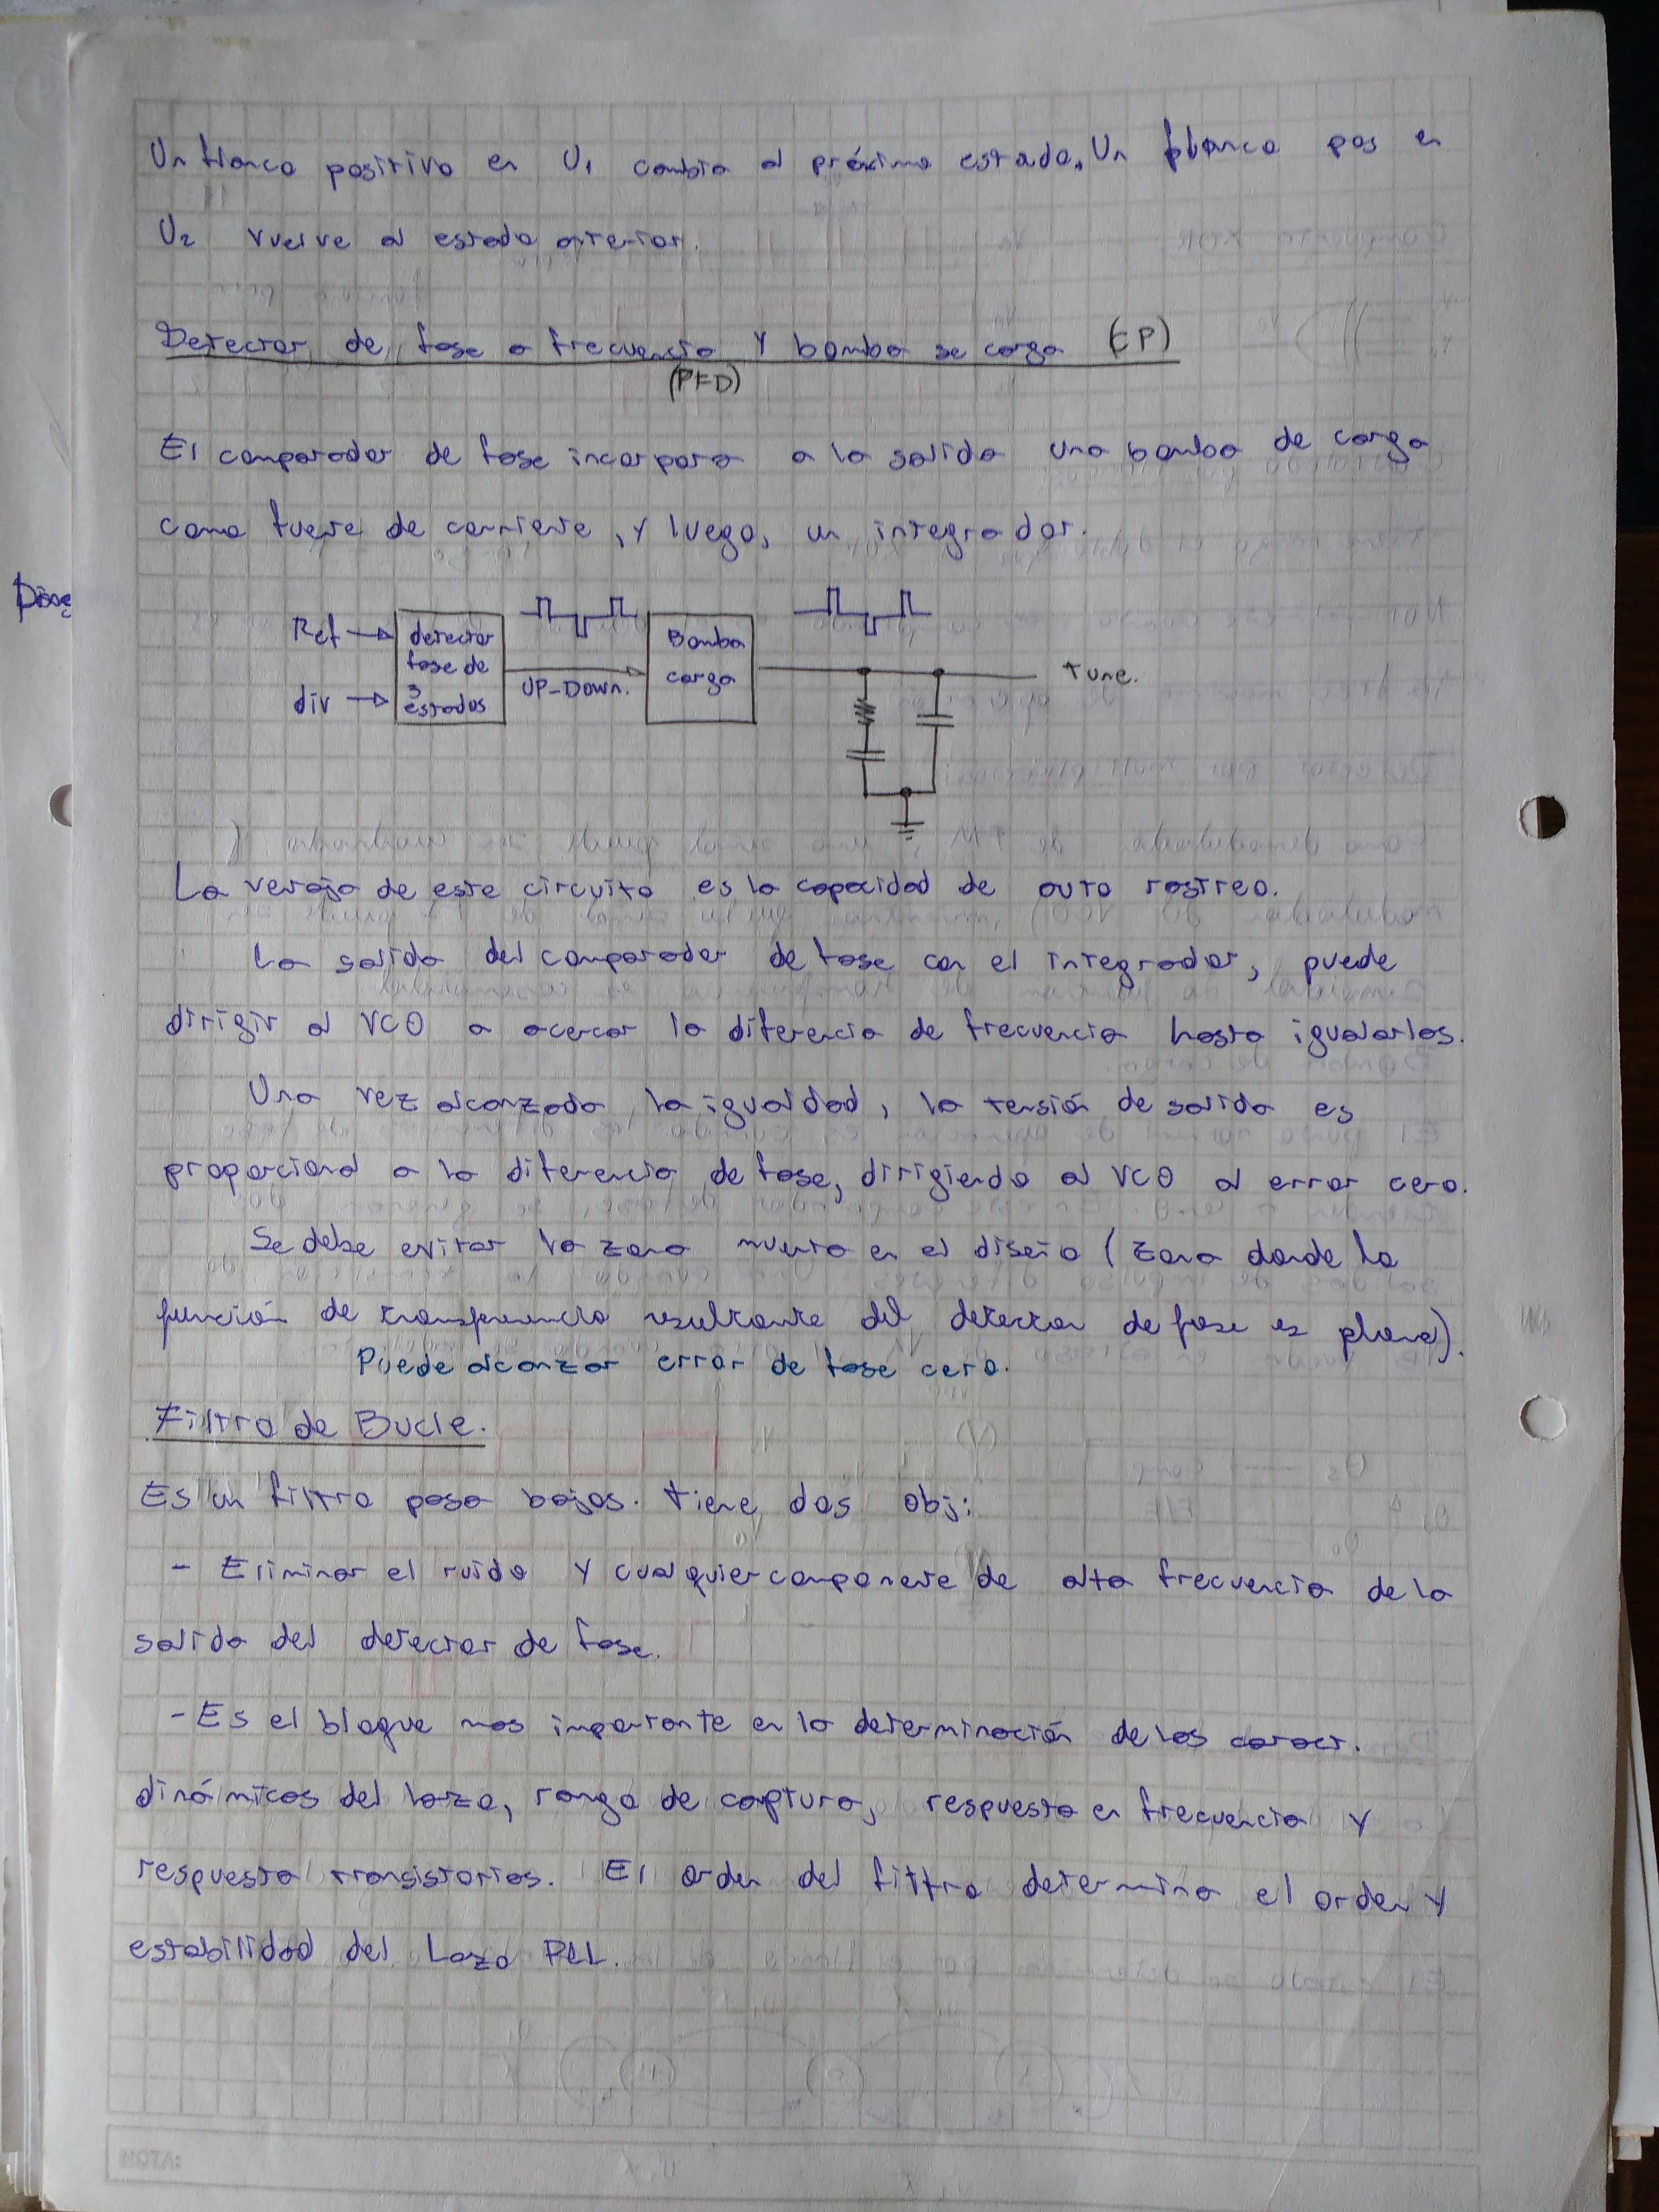 Un flanco positivo en U1 cambia al próximo estado. Un flanco pos en
U2 vuelve al estado anterior.
Detector de fase o frecuencia y bomba se carga (CP)
(PFD)
El comparador de fase incorpora a la salida una bomba de carga
como fuente de corriente, y luego, un integrador.
Ref
detector
fase de
3
estados
div
UP-DOWN.
Bomba
carga
Tune.
La ventaja de este circuito es la capacidad de auto rastreo.
La salida del comparador de fase con el integrador, puede
dirigir al VCO a acercar la diferencia de frecuencia hasta igualarlas.
Una vez alcanzada la igualdad, la tensión de salida es
proporcional a la diferencia de fase, dirigiendo al VCO al error cero.
Se debe evitar la zona muerta en el diseño (zona donde la
función de transferencia resultante del detector de fase es plana).
Puede alcanzar error de fase cero.
Filtro de Bucle.
Es un filtro pasa bajos. tiene dos obj:
- Eliminar el ruido y cualquier componente de alta frecuencia de la
salida del detector de fase.
- Es el bloque mas importante en la determinación de las caract.
dinámicas del lazo, rango de captura, respuesta en frecuencia y
respuesta transistorias. El orden del filtro determina el orden y
estabilidad del Lazo PLL.